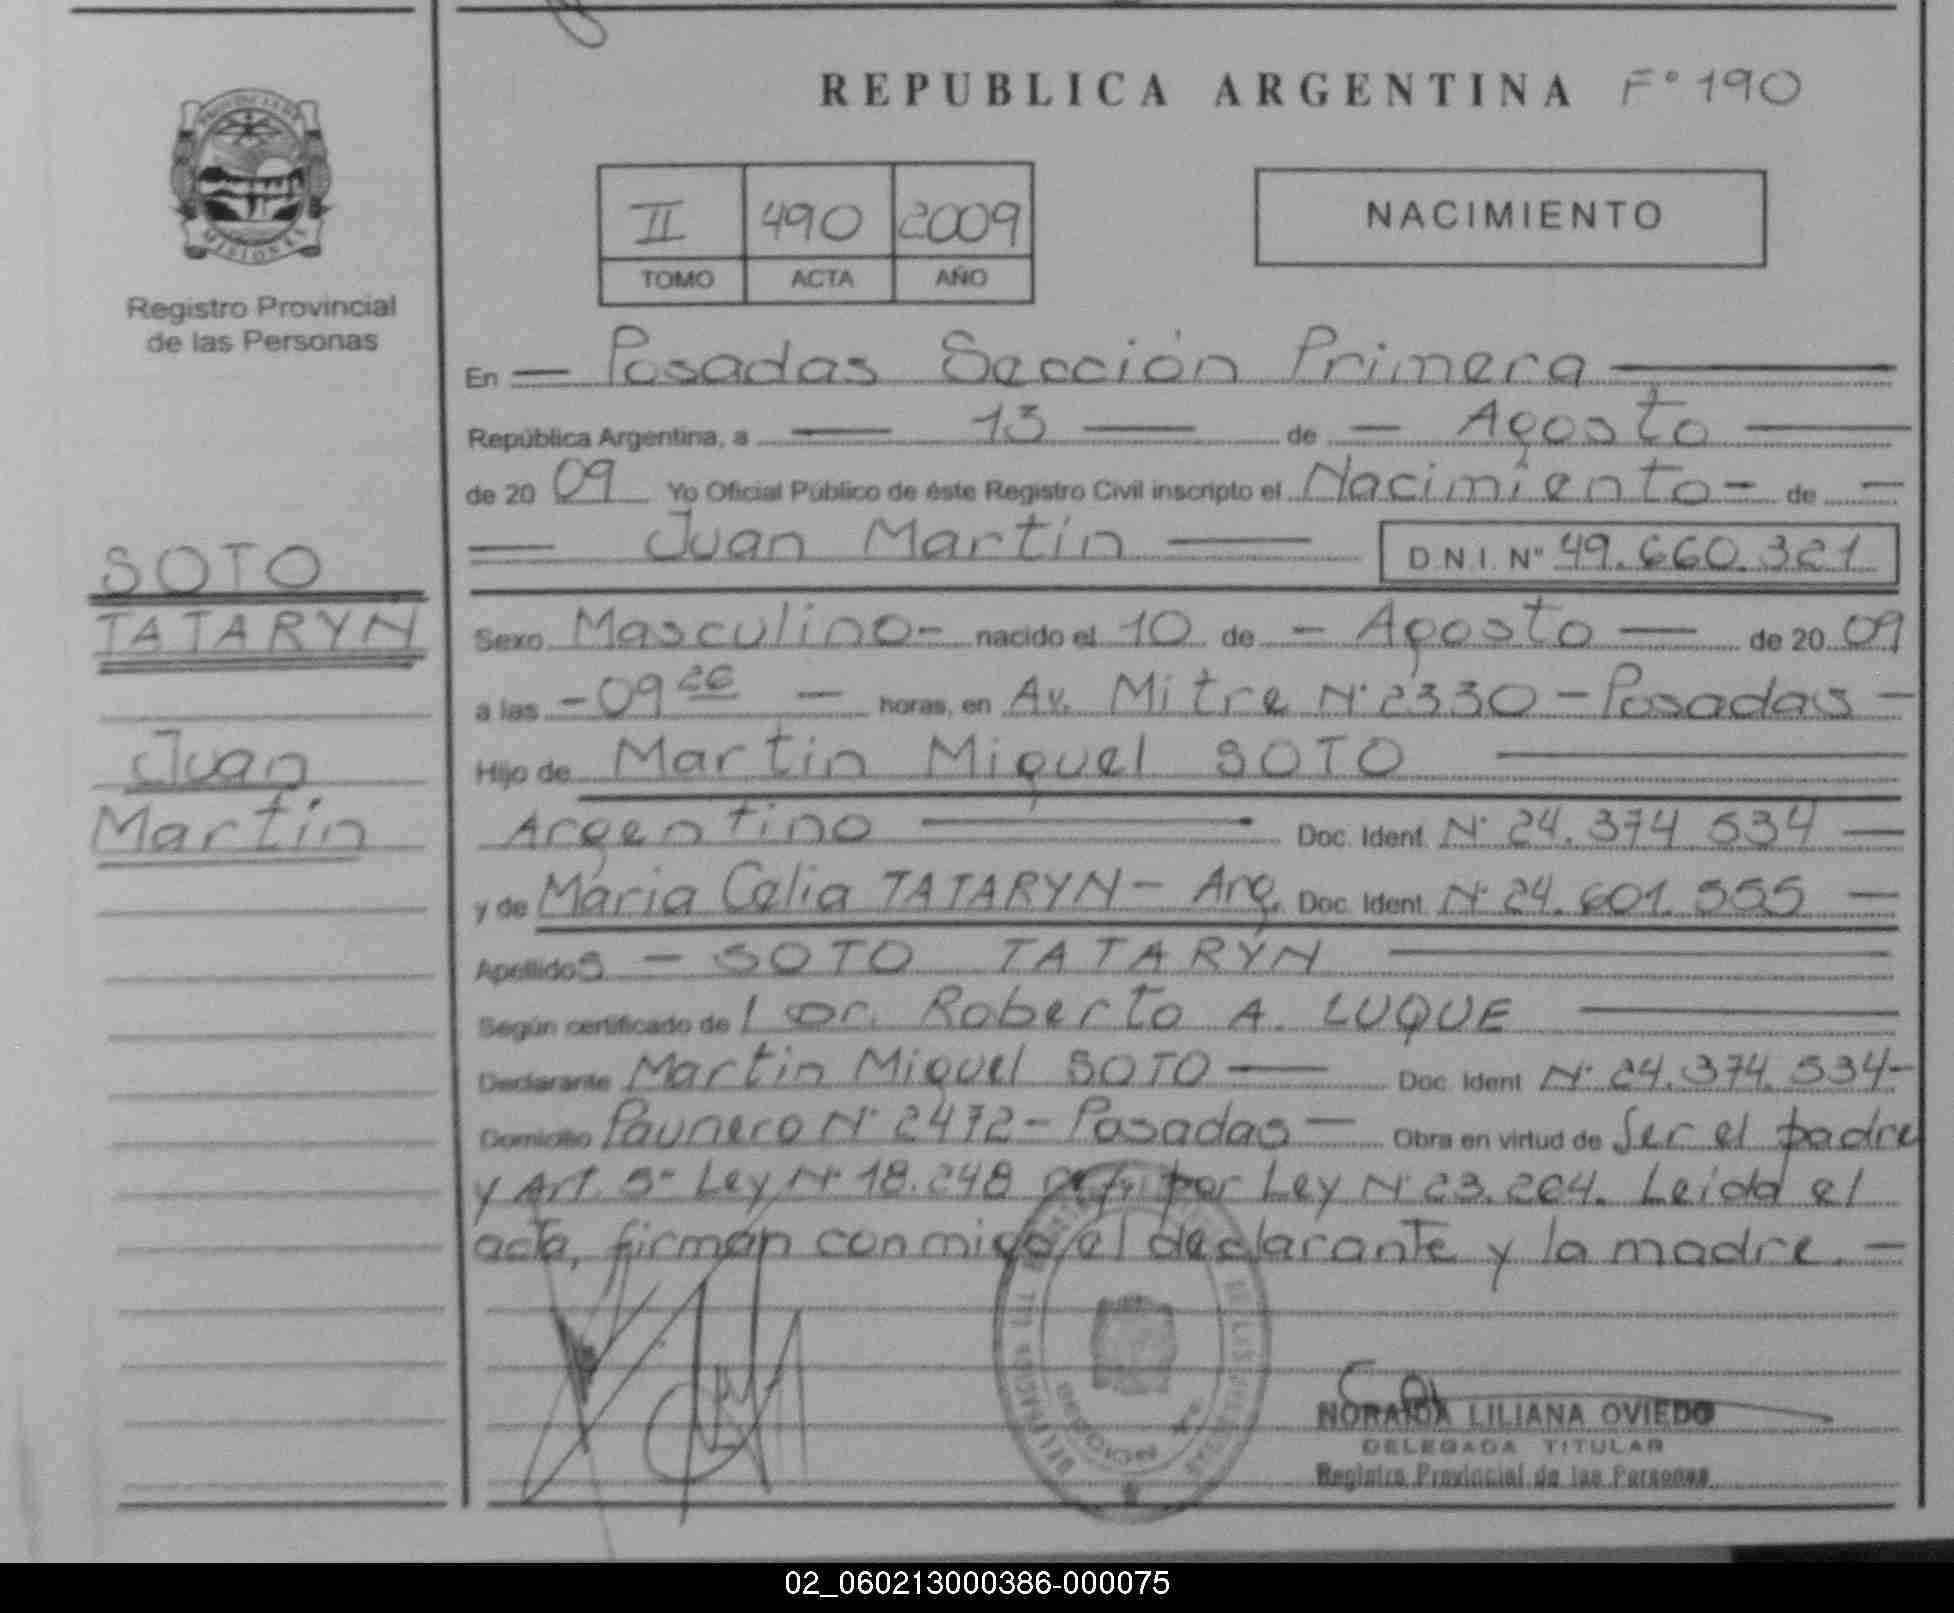 REPUBLICA ARGENTINA Fº 190
PROVINCIA DE
MISIONES
Registro Provincial
de las Personas
II 490 2009
TOMO ACTA AÑO
NACIMIENTO
En — Posadas Sección Primera —
República Argentina, a — 13 — de — Agosto —
de 20 09 Yo Oficial Público de éste Registro Civil inscripto el Nacimiento - de —
— Juan Martín — D.N.I. Nº 49.660.321
SOTO
TATARYN
Juan
Martín
Sexo Masculino - nacido el 10 de — Agosto — de 20 09
a las - 09 26 — horas, en Av. Mitre Nº 2330 - Posadas -
Hijo de Martin Miguel SOTO —
Argentino — Doc. Ident. Nº 24.374 534 —
y de Maria Celia TATARYN - Arg. Doc. Ident. Nº 24.601.555 —
Apellidos — SOTO TATARYN —
Según certificado de Dr. Roberto A. LUQUE —
Declarante Martin Miguel SOTO — Doc. Ident Nº 24.374.534 -
Domicilio Paunero Nº 2472 - Posadas — Obra en virtud de Ser el padre
y Art. 5º Ley Nº 18.248 por Ley Nº 23.264. Leida el
acta, firman conmigo el declarante y la madre. —
NORAIDA LILIANA OVIEDO
DELEGADA TITULAR
Registro Provincial de las Personas
02_060213000386-000075